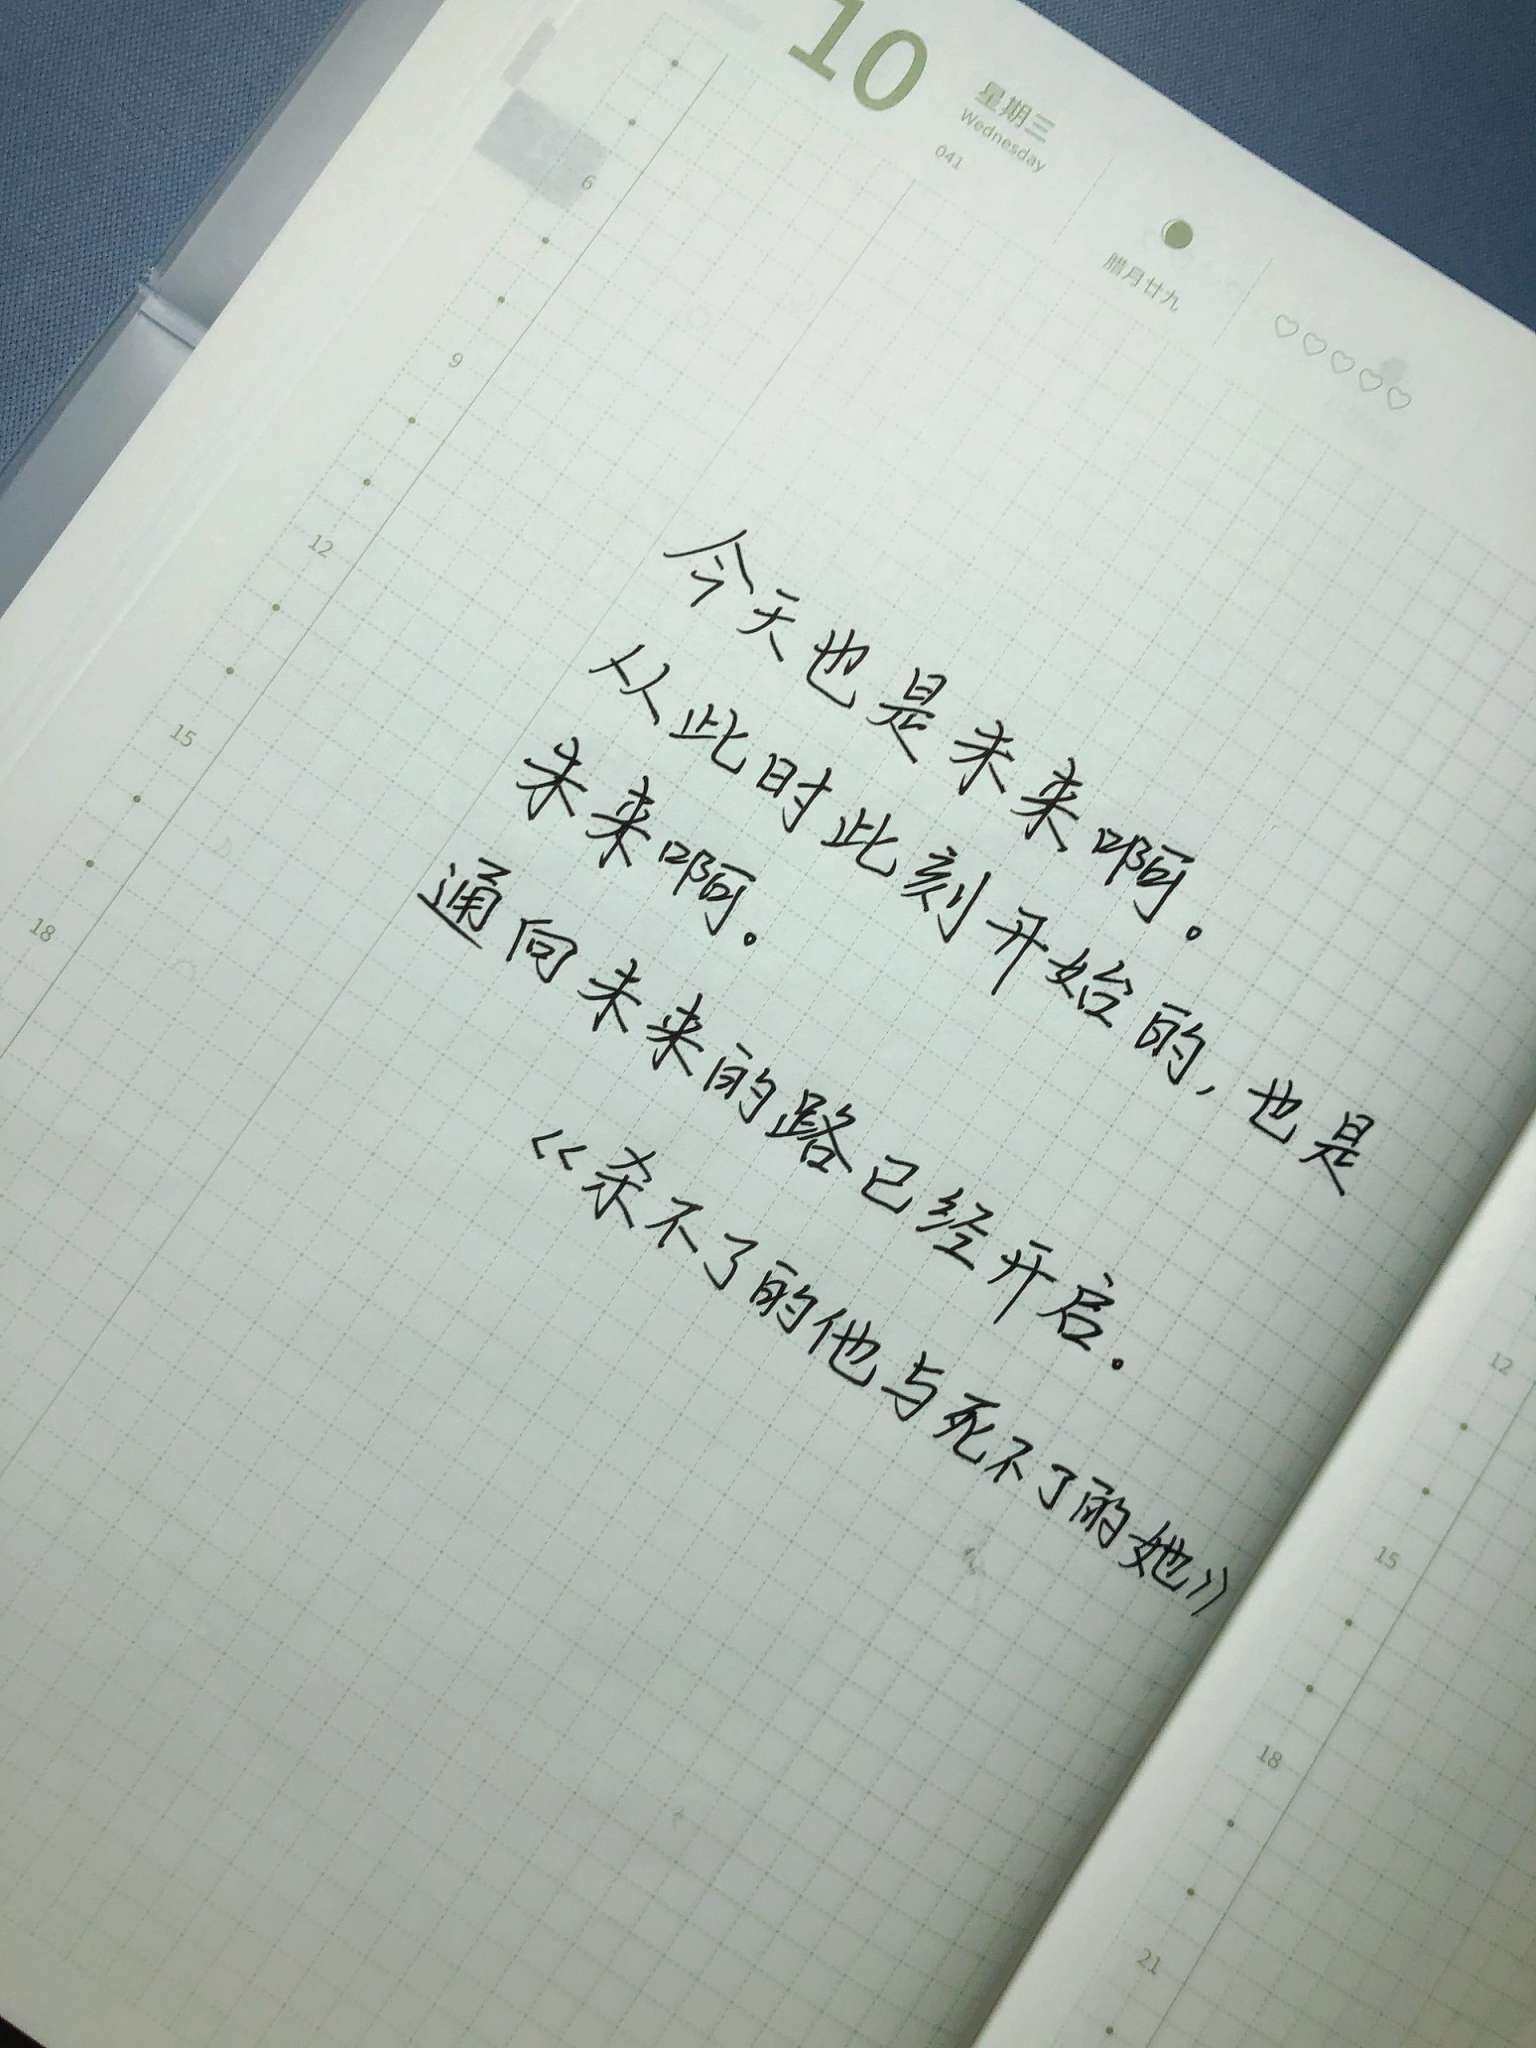 10
星期三
Wednesday
041
腊月廿九
6
9
12
15
18
今天也是未来啊。
从此时此刻开始的,也是
未来啊。
通向未来的路已经开启.
《杀不了的他与死不了的她》
12
15
18
21